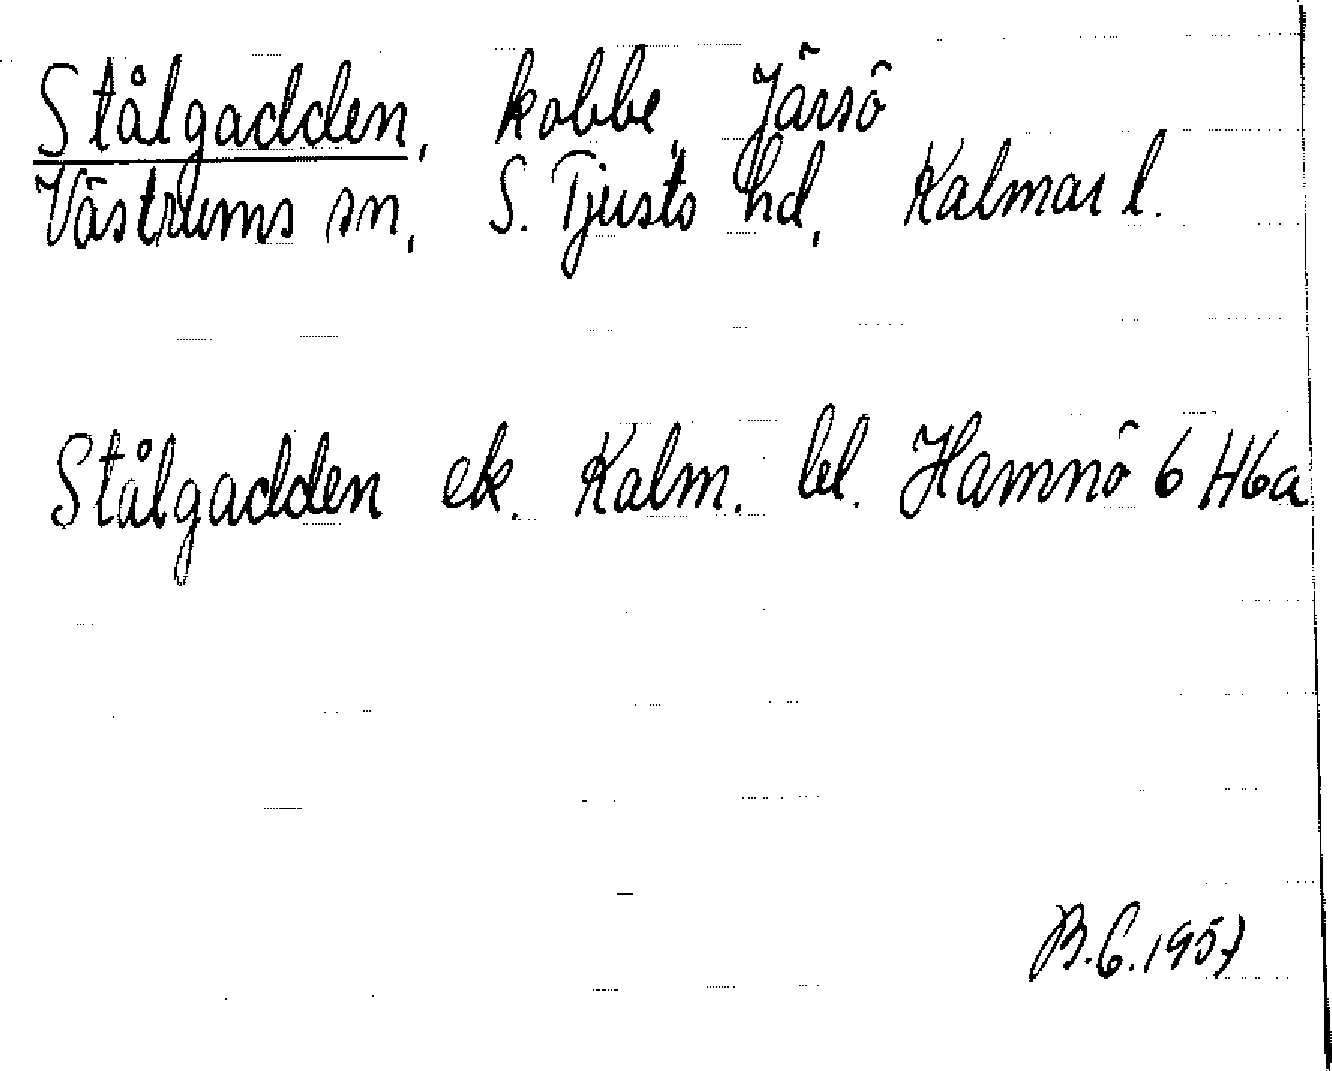 Stålgadden, kobbe, Järsö
Västrums sn, S. Tjusts hd, Kalmar l.
Stålgadden ek. Kalm. bl. Hamnö 6 H6a
B.G. 1957